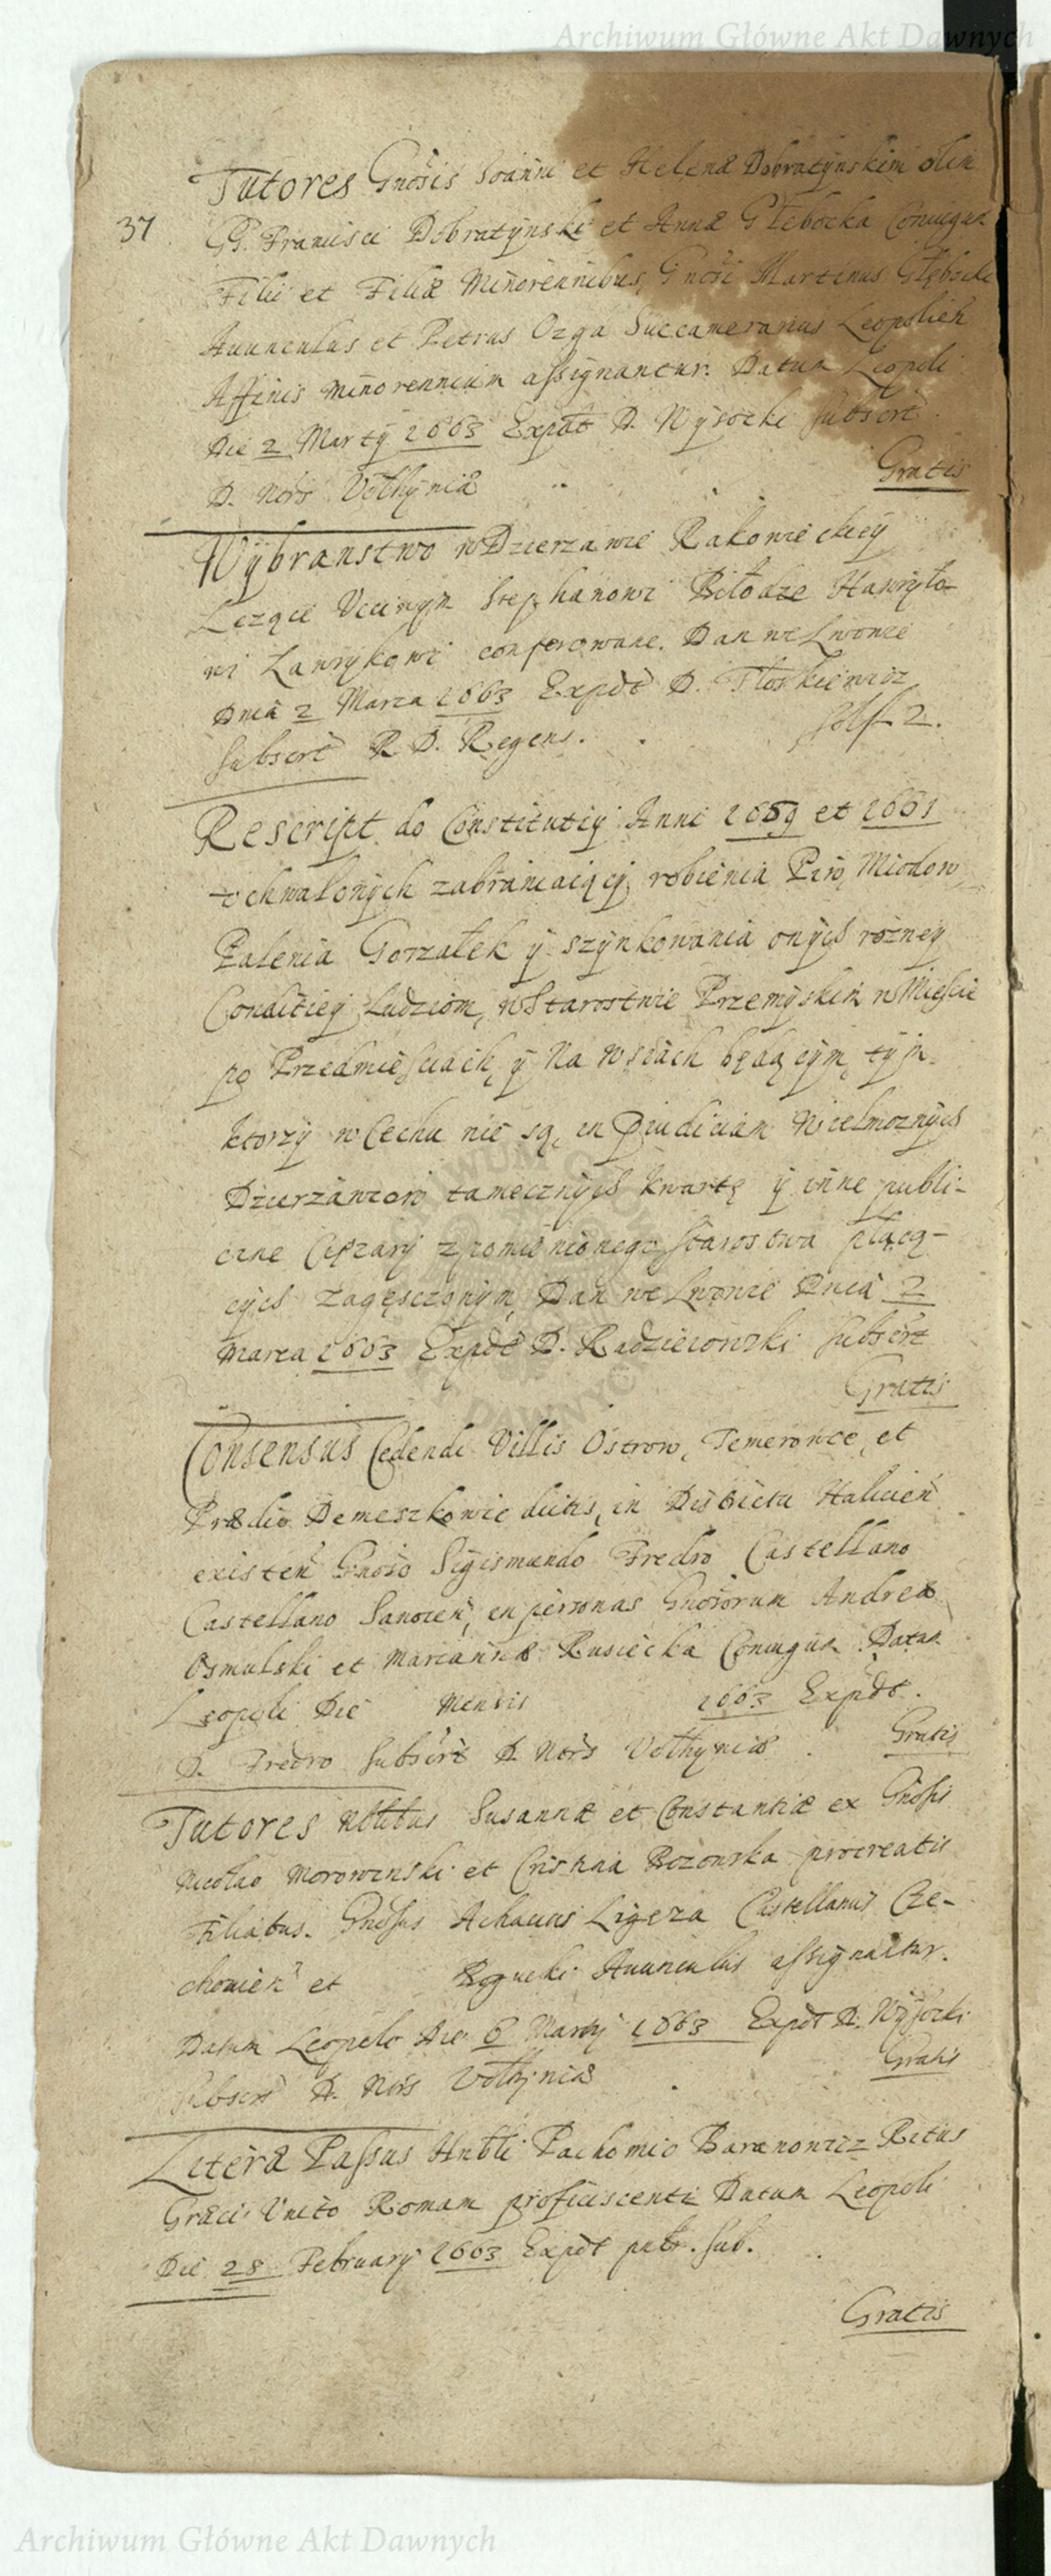 Archiwum Główne Akt Dawnych
Tutores Gnosis Joanni et Helenæ Dobratynskim olim
37
GG. Francisci Dobratynski et Annæ Głebocka Coniugum
Filii et Filiæ Minorennibus, Gnosi Martinus Głębocki
Auunculus et Petrus Ozga Succamerarius Leopolień
Affinis minorennium assignantur. Datum Leopoli
Die 2 Marty 1663 Expdt D. Wysocki subscrt
D. Nors Volhyniæ Gratis
Wybranstwo w Dzierzawie Rakowieckiey
Lezące Vcciwym Stephanowi Biłodze Hawryło-
wi Ławrykowi conferowane. Dan we Lwowie
Dnia 2 Marca 1663 Expdt D. Floskiewicz
subscrt R D. Regens. solt 2.
Rescript do Constitutiy Anni 1659 et 1661
vchwalonych zabraniaiący robienia Piw, Miodow
Palenia Gorzałek y szynkowania onych rozney
Conditiey Ludziom, w Starostwie Przemyskim w Miescie
po Przedmiesciach, y na wsiach będącym, tym
ktorzy w Cechu nie są, in Praeiudicium Wielmoznych
Dzierzawcow tamecznych kwartę y inne publi-
czne Cięzary z pomienionego starostwa płacą-
cych zagęsczonym, Dan we Lwowie Dnia 2
Marca 1663 Expdt D. Radzieiowski subscrt
Gratis
Consensus Cedendi Villis Ostrow, Temerowce, et
Prædio Demeszkowce dictis, in Districtu Halicień
existeń Gnoso Sigismundo Fredro Castellano
Castellano Sanoceń, in personas Gnosorum Andreæ
Osmulski et Mariannæ Rusiecka Coniugum Datum
Leopoli Die Mensis 1663 Expdt.
D. Fredro subscrt D. Nors Volhyniæ Gratis
Tutores Nblibus Susannæ et Constantiæ ex Gnosis
Nicolao Morowinski et Cristina Rozowska procreatis
Filiabus. Gnosus Achacius Ligeza Castellanus Cze-
chouień et Rogucki Auunculus assignantur.
Datum Leopoli Die 6 Marty 1663 Expdt D. Wysocki
subscrt D. Nors Volhyniæ Gratis
Literæ Passus Hnbli Pachomio Baranowicz Ritus
Græci Vnito Romam proficiscenti Datum Leopoli
Die 28 February 1663 Expdt patr. sub.
Gratis
Archiwum Główne Akt Dawnych